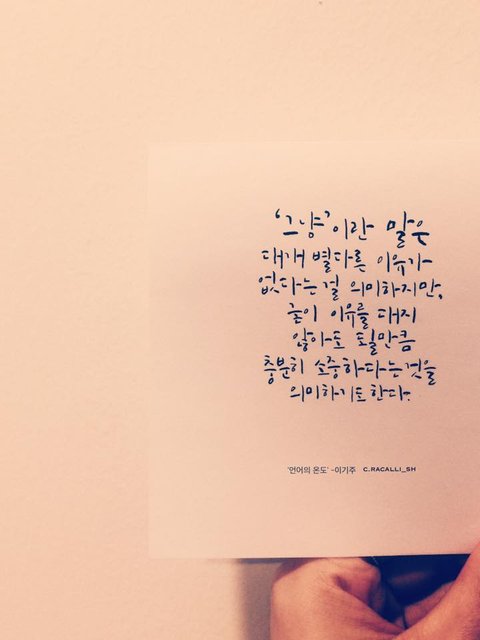 '그냥'이란 말은
대개 별다른 이유가
없다는걸 의미하지만,
굳이 이유를 대지
않아도 될만큼
충분히 소중하다는것을
의미하기도한다.
'언어의 온도' -이기주 C.RACALLI_SH